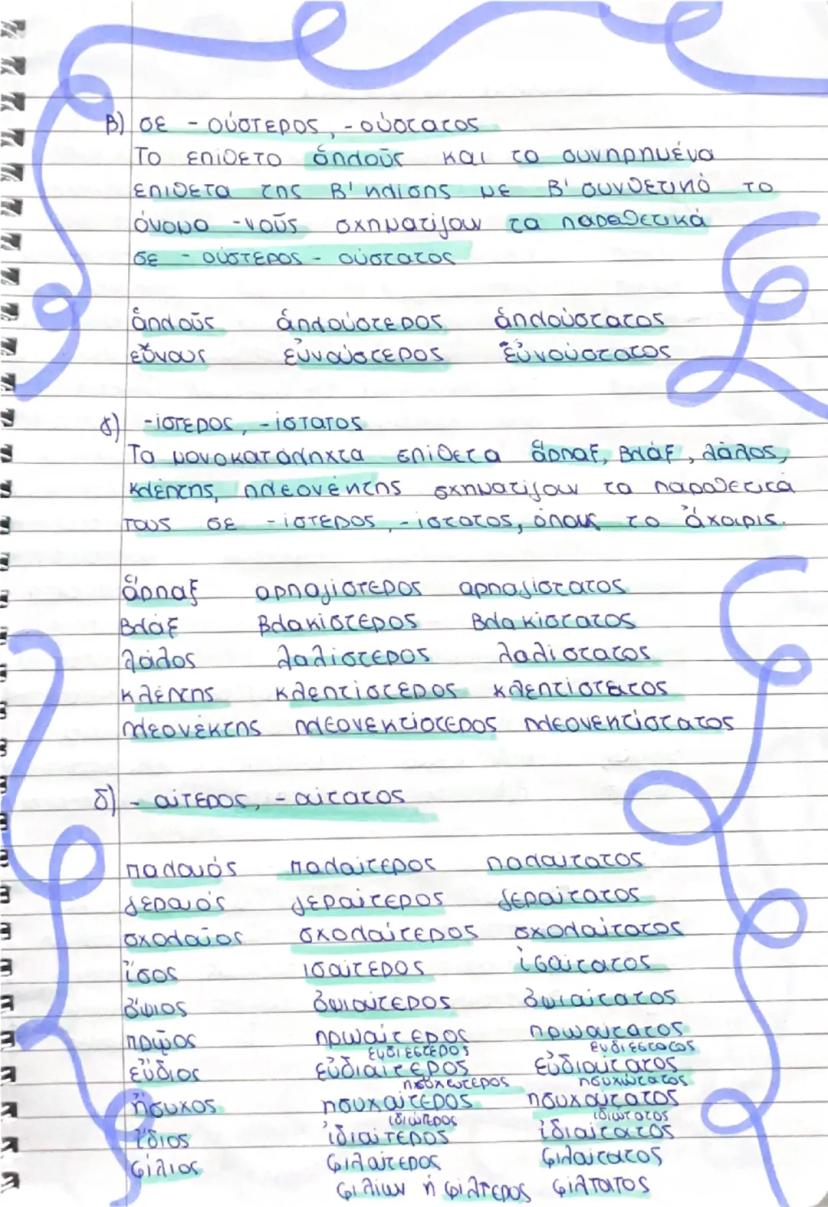 β) σε -ούστερος, -ούστατος
Το επίθετο ἁπλοῦς και τα συνηρημένα
επίθετα της β' κλίσης με β' συνθετικό το
όνομα -νοῦς σχηματίζουν τα παραθετικά
σε -ούστερος -ούστατος
ἁπλοῦς ἁπλούστερος ἁπλούστατος
εὔνους εὐνούστερος εὐνούστατος
γ) -ίστερος, -ίστατος
Τα μονοκατάληκτα επίθετα ἅρπαξ, βλάξ, λάλος,
κλέπτης, πλεονέκτης σχηματίζουν τα παραθετικά
τους σε -ίστερος, -ίστατος, όπως το ἄχαρις.
ἅρπαξ αρπαγίστερος αρπαγίστατος
βλάξ βλακίστερος βλακίστατος
λάλος λαλίστερος λαλίστατος
κλέπτης κλεπτίστερος κλεπτίστατος
πλεονέκτης πλεονεκτίστερος πλεονεκτίστατος
δ) -αίτερος, -αίτατος
παλαιός παλαίτερος παλαίτατος
γεραιός γεραίτερος γεραίτατος
σχολαῖος σχολαίτερος σχολαίτατος
ἴσος ισαίτερος ἰσαίτατος
ὄψιος ὀψιαίτερος ὀψιαίτατος
πρῷος πρωαίτερος πρωαίτατος
ευδιέστερος ευδιέστατος
εὔδιος εὐδιαίτερος εὐδιαίτατος
ησυχώτερος ησυχώτατος
ἥσυχος ησυχαίτερος ησυχαίτατος
ιδιώτερος ιδιώτατος
ἴδιος ἰδιαίτερος ἰδιαίτατος
φίλιος φιλαίτερος φιλαίτατος
φιλίων ή φίλτερος φίλτατος